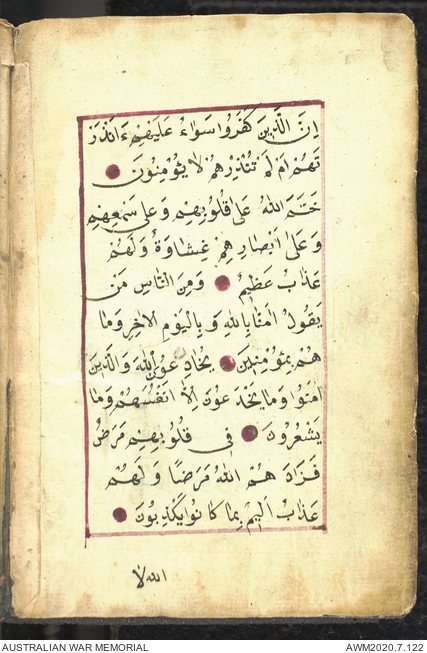 اِنَّ الَّذِينَ كَفَرُوا سَوَاءٌ عَلَيْهِمْ ءَاَنْذَرْ
تَهُمْ اَمْ لَمْ تُنْذِرْهُمْ لَا يُؤْمِنُونَ
خَتَمَ اللّٰهُ عَلٰى قُلُوبِهِمْ وَعَلٰى سَمْعِهِمْ
وَعَلٰى اَبْصَارِهِمْ غِشَاوَةٌ وَلَهُمْ
عَذَابٌ عَظِيمٌ وَمِنَ النَّاسِ مَنْ
يَقُولُ اٰمَنَّا بِاللّٰهِ وَبِالْيَوْمِ الْاٰخِرِ وَمَا
هُمْ بِمُؤْمِنِينَ يُخَادِعُونَ اللّٰهَ وَالَّذِينَ
اٰمَنُوا وَمَا يَخْدَعُونَ اِلَّا اَنْفُسَهُمْ وَمَا
يَشْعُرُونَ فِى قُلُوبِهِمْ مَرَضٌ
فَزَادَهُمُ اللّٰهُ مَرَضًا وَلَهُمْ
عَذَابٌ اَلِيمٌ بِمَا كَانُوا يَكْذِبُونَ
AUSTRALIAN WAR MEMORIAL
AWM2020.7.122